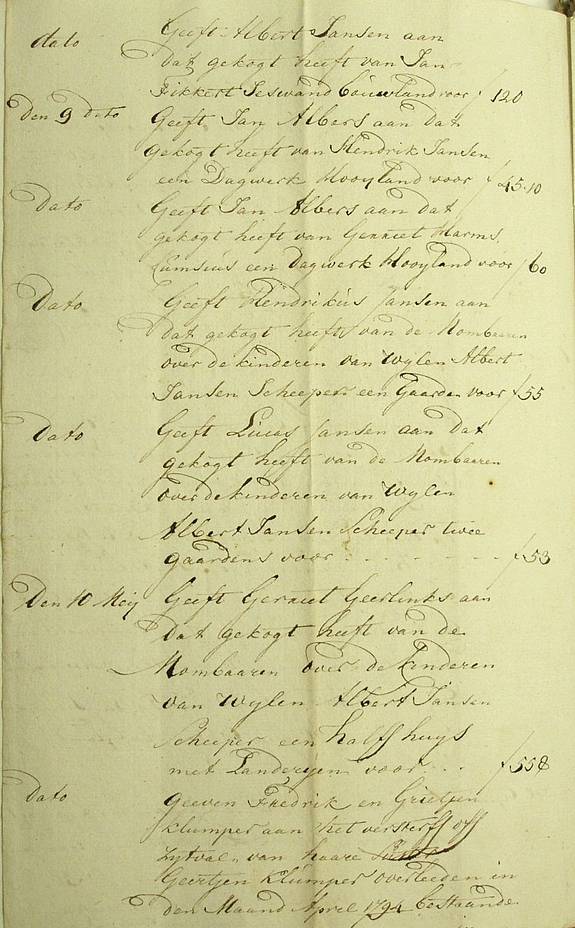 dato Geeft Albert Jansen aan
dat gekogt heeft van Jan
Fikkert Seswand bouwland voor f 120
Den 9 dito Geeft Jan Albers aan dat
gekogt heeft van Hendrik Jansen
een Dagwerk Hooyland voor f 45-10
Dato Geeft Jan Albers aan dat
gekogt heeft van Gerriet Harms
een Dagwerk Hooyland voor f 60
Dato Geeft Hendrikus Jansen aan
dat gekogt heeft van de Mombaaren
over de kinderen van Wylen Albert
Jansen Scheeper een Gaarden voor f 55
Dato Geeft Lucas Jansen aan dat
gekogt heeft van de Mombaaren
over de kinderen van Wylen
Albert Jansen Scheeper twee
gaardens voor - - - - - - f 53
Den 10 Meij Geeft Gerriet Geerlinks aan
dat gekogt heeft van de
Mombaaren over de kinderen
van Wylen Albert Jansen
Scheeper een halff huys
met Landeryen voor - - f 558
Dato Geeven Fredrik en Grietjen
Klumper aan het versterff off
zytval van haare
Geertjen Klumper overleeden in
den Maand April 1794 bestaande